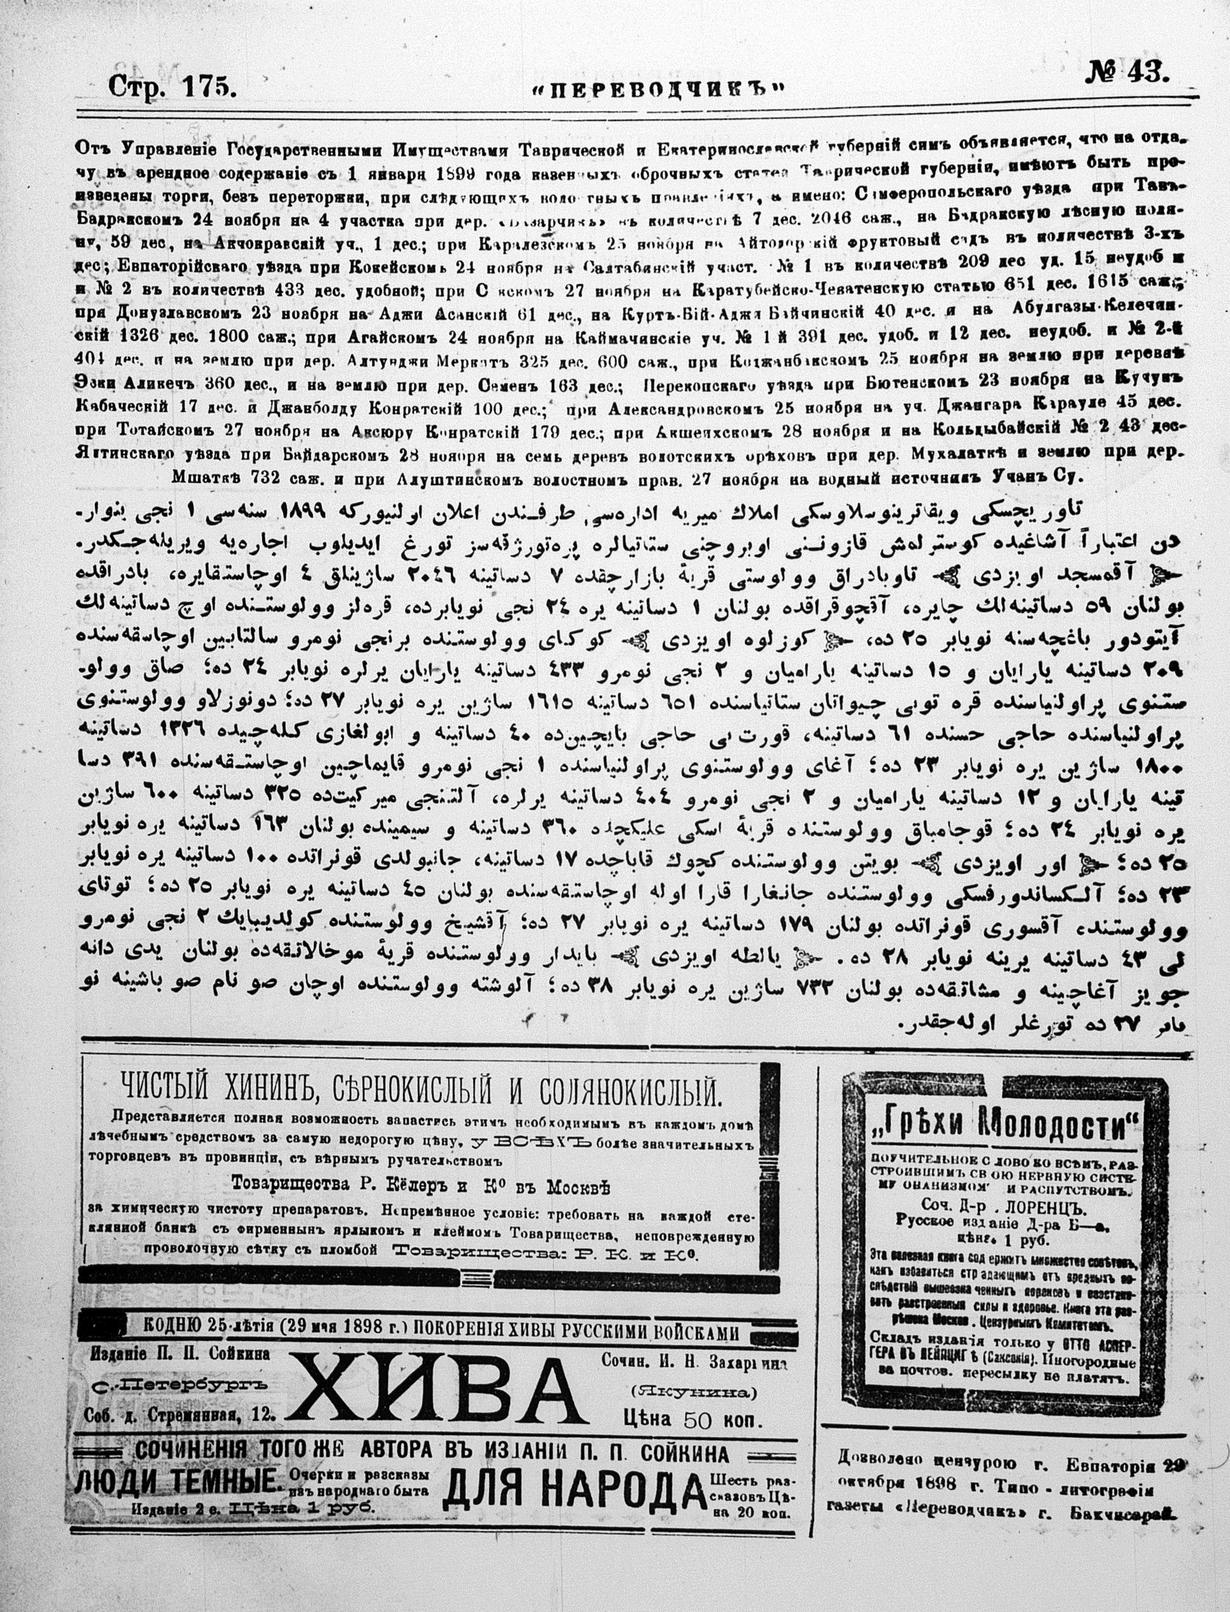 Стр. 175.
„ПЕРЕВОДЧИКЪ"
№ 43.
Отъ Управленіе Государственными Имуществами Таврической и Екатеринославской губерній симъ объявляется, что на отда-
чу въ арендное содержаніе съ 1 января 1899 года казенныхъ оброчныхъ статей Таврической губерніи, имѣютъ быть про-
изведены торги, безъ переторжки, при слѣдующихъ волостныхъ правленіяхъ, а имено: Симферопольскаго уѣзда при Тавъ-
Бадракскомъ 24 ноября на 4 участка при дер. «Базарчикъ» въ количествѣ 7 дес. 2046 саж., на Бадракскую лѣсную поля-
ну, 59 дес, на Акчокравскій уч., 1 дес.; при Каралезскомъ 25 ноября на Айтодорскій фруктовый садъ въ количествѣ 3-хъ
дес; Евпаторійскаго уѣзда при Кокейскомъ 24 ноября на Салтабинскій участ. № 1 въ количествѣ 209 дес уд. 15 неудоб и
и № 2 въ количествѣ 433 дес. удобной; при С кскомъ 27 ноября на Каратубейско-Чеватенскую статью 651 дес. 1615 саж.;
при Донузлавскомъ 23 ноября на Аджи Асанскій 61 дес., на Куртъ-Бій-Аджи Байчинскій 40 дес. и на Абулгазы-Келечин-
скій 1326 дес. 1800 саж.; при Агайскомъ 24 ноября на Каймачинскіе уч. № 1 й 391 дес. удоб. и 12 дес. неудоб. и № 2-й
404 дес. и на землю при дер. Алтунджи Меркитъ 325 дес. 600 саж., при Коджанбакскомъ 25 ноября на землю при деревнѣ
Эски Аликечъ 360 дес., и на землю при дер. Семенъ 163 дес.; Перекопскаго уѣзда при Бютенскомъ 23 ноября на Кучукъ
Кабаческій 17 дес. и Джанболду Конратскій 100 дес.; при Александровскомъ 25 ноября на уч. Джангара Карауле 45 дес.
при Тотайскомъ 27 ноября на Аксюру Конратскій 179 дес.; при Акшеихскомъ 28 ноября и на Кольдыбайскій № 2 43 дес-
Ялтинскаго уѣзда при Байдарскомъ 28 ноября на семь деревъ волотскихъ орѣховъ при дер. Мухалаткѣ и землю при дер.
Мшаткѣ 732 саж. и при Алуштинскомъ волостномъ прав. 27 ноября на водный источникъ Учанъ Су.
تاوریچسکی ویقاترینوسلاوسکی املاك میریه اداره‌سی طرفندن اعلان اولنیورکه ١٨٩٩ سنه‌سی ١ نجی ینوار-
دن اعتباراً آشاغیده کوسترلمش قازونی اوبروچنی ستاتیالره پره‌تورژقه‌سز تورغ ایدیلوب اجاره‌یه ویریله‌جکدر.
آقمسجد اویزدی تاوبادراق وولوستی قریۀ بازارچقده ٧ دساتینه ٢٠٤٦ ساژینلق ٤ اوچاستقایره، بادراقده
بولنان ٥٩ دساتینه‌لك چایره، آقچوقراقده بولنان ١ دساتینه یره ٢٤ نجی نویابرده، قره‌لز وولوستنده اوچ دساتینه‌لك
آیتودور باغچه‌سنه نویابر ٢٥ ده، کوزلوه اویزدی کوکای وولوستنده برنجی نومرو سالتابین اوچاسقه‌سنده
٢٠٩ دساتینه یارایان و ١٥ دساتینه یارامیان و ٢ نجی نومرو ٤٣٣ دساتینه یارایان یرلره نویابر ٢٤ ده؛ صاق وولو-
ستنوی پراولنیاسنده قره توبی چیواتان ستاتیاسنده ٦٥١ دساتینه ١٦١٥ ساژین یره نویابر ٢٧ ده؛ دونوزلاو وولوستنوی
پراولنیاسنده حاجی حسنده ٦١ دساتینه، قورت بی حاجی بایچین‌ده ٤٠ دساتینه و ابولغازی کله‌چیده ١٣٢٦ دساتینه
١٨٠٠ ساژین یره نویابر ٢٣ ده؛ آغای وولوستنوی پراولنیاسنده ١ نجی نومرو قایماچین اوچاستقه‌سنده ٣٩١ دسا
تینه یارایان و ١٢ دساتینه یارامیان و ٢ نجی نومرو ٤٠٤ دساتینه یرلره، آلتنجی میرکیت‌ده ٣٢٥ دساتینه ٦٠٠ ساژین
یره نویابر ٢٤ ده؛ قوجامباق وولوستنده قریۀ اسکی علیکچده ٣٦٠ دساتینه و سیمینده بولنان ١٦٣ دساتینه یره نویابر
٢٥ ده؛ اور اویزدی بویتن وولوستنده کچوك قاباچده ١٧ دساتینه، جانبولدی قونراتده ١٠٠ دساتینه یره نویابر
٢٣ ده؛ آلکساندورفسکی وولوستنده جانغارا قارا اوله اوچاستقه‌سنده بولنان ٤٥ دساتینه یره نویابر ٢٥ ده؛ توتای
وولوستنده، آقسوری قونراتده بولنان ١٧٩ دساتینه یره نویابر ٢٧ ده؛ آقشیخ وولوستنده کولدیبایك ٢ نجی نومرو
لی ٤٣ دساتینه یرینه نویابر ٢٨ ده. یالطه اویزدی بایدار وولوستنده قریۀ موخالاتقه‌ده بولنان یدی دانه
جویز آغاچینه و مشاتقه‌ده بولنان ٧٣٢ ساژین یره نویابر ٣٨ ده؛ آلوشته وولوستنده اوچان صو نام صو باشینه نو
یابر ٢٧ ده تورغلر اوله‌جقدر.
ЧИСТЫЙ ХИНИНЪ, СѢРНОКИСЛЫЙ И СОЛЯНОКИСЛЫЙ.
Представляется полная возможность запастись этимъ необходимымъ въ каждомъ домѣ
лѣчебнымъ средствомъ за самую недорогую цѣну, у ВСѢХЪ болѣе значительныхъ
торговцевъ въ провинціи, съ вѣрнымъ ручательствомъ
Товарищества Р. Кёлеръ и К⁰ въ Москвѣ
за химическую чистоту препаратовъ. Непремѣнное условіе: требовать на каждой сте-
клянной банкѣ съ фирменнымъ ярлыкомъ и клеймомъ Товарищества, неповрежденную
проволочную сѣтку съ пломбой Товарищества: Р. К. и К⁰.
„Грѣхи Молодости“
ПОУЧИТЕЛЬНОЕ СЛОВО КО ВСѢМЪ, РАЗ-
СТРОИВШИМЪ СВОЮ НЕРВНУЮ СИСТЕ-
МУ ОНАНИЗМОМ И РАСПУТСТВОМЪ.
Соч. Д-р . ЛОРЕНЦЪ.
Русское изданіе Д-ра Б—а.
цѣна 1 руб.
Эта полезная книга содержитъ множество совѣтовъ,
какъ избавиться страдающимъ отъ вредныхъ по-
слѣдствій вышеозначенныхъ пороковъ и возстано-
вить разстроенныя силы и здоровье. Книга эта раз-
рѣшена Москов. Цензурнымъ Комитетомъ.
Складъ изданія только у ОТТО АСПЕР-
ГЕРА ВЪ ЛЕЙПЦИГѢ (Саксонія). Иногородные
за почтов. пересылку не платятъ.
КО ДНЮ 25-лѣтія (29 мая 1898 г.) ПОКОРЕНІЯ ХИВЫ РУССКИМИ ВОЙСКАМИ
Изданіе П. П. Сойкина
С.-Петербургъ
Соб. д. Стремянная, 12.
ХИВА
Сочин. И. Н. Захарьина
(Якунина)
Цѣна 50 коп.
СОЧИНЕНІЯ ТОГО ЖЕ АВТОРА ВЪ ИЗДАНІИ П. П. СОЙКИНА
ЛЮДИ ТЕМНЫЕ. Очерки и разсказы
изъ народнаго быта
Изданіе 2 е. Цѣна 1 руб.
ДЛЯ НАРОДА Шесть раз-
сказовъ Цѣ-
на 20 коп.
Дозволено цензурою г. Евпаторія 29
октября 1898 г. Типо - литографія
газеты «Переводчикъ» г. Бакчисарай.